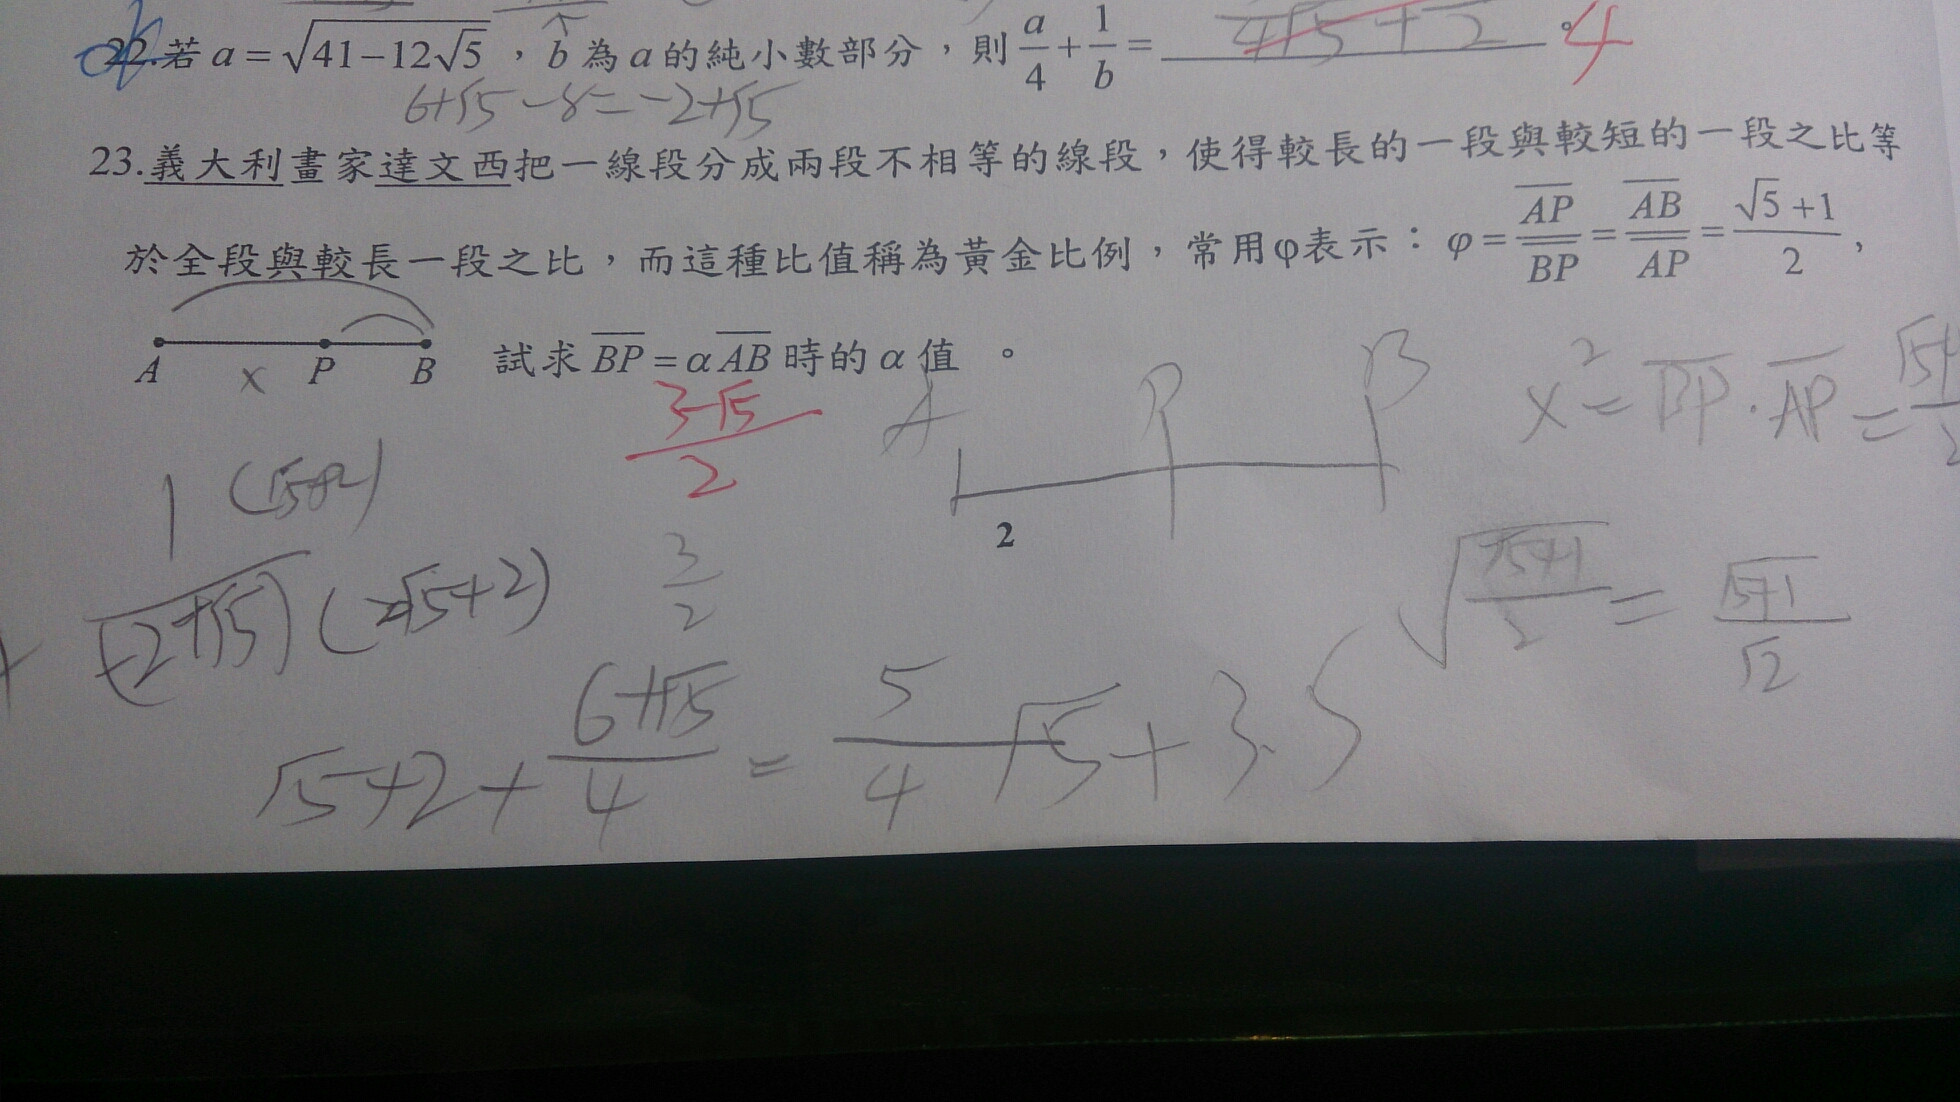 22.若 a = √(41−12√5) , b 為 a 的純小數部分,則 a/4 + 1/b = 。 4
6+√5 −8 = −2+√5
23.義大利畫家達文西把一線段分成兩段不相等的線段,使得較長的一段與較短的一段之比等
於全段與較長一段之比,而這種比值稱為黃金比例,常用φ表示:φ = AP/BP = AB/AP = (√5+1)/2 ,
A x P B 試求 BP = α AB 時的 α 值 。
(3−√5)/2
A P B
x² = BP · AP =
2
1
(−2+√5)
3/2
√((√5+1)/2) = (√5+1)/√2
√5+2 + (6+√5)/4 = 5/4 √5 + 3.5